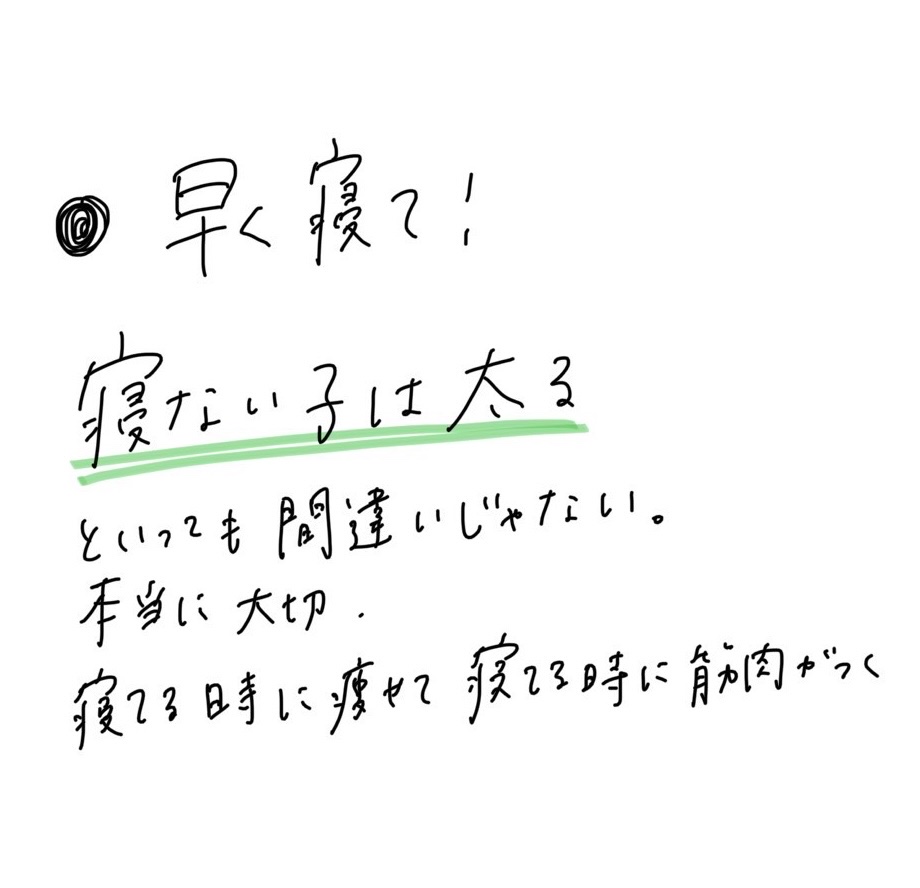 ◉ 早く寝て!
寝ない子は太る
といっても間違いじゃない。
本当に大切.
寝てる時に痩せて 寝てる時に筋肉がつく